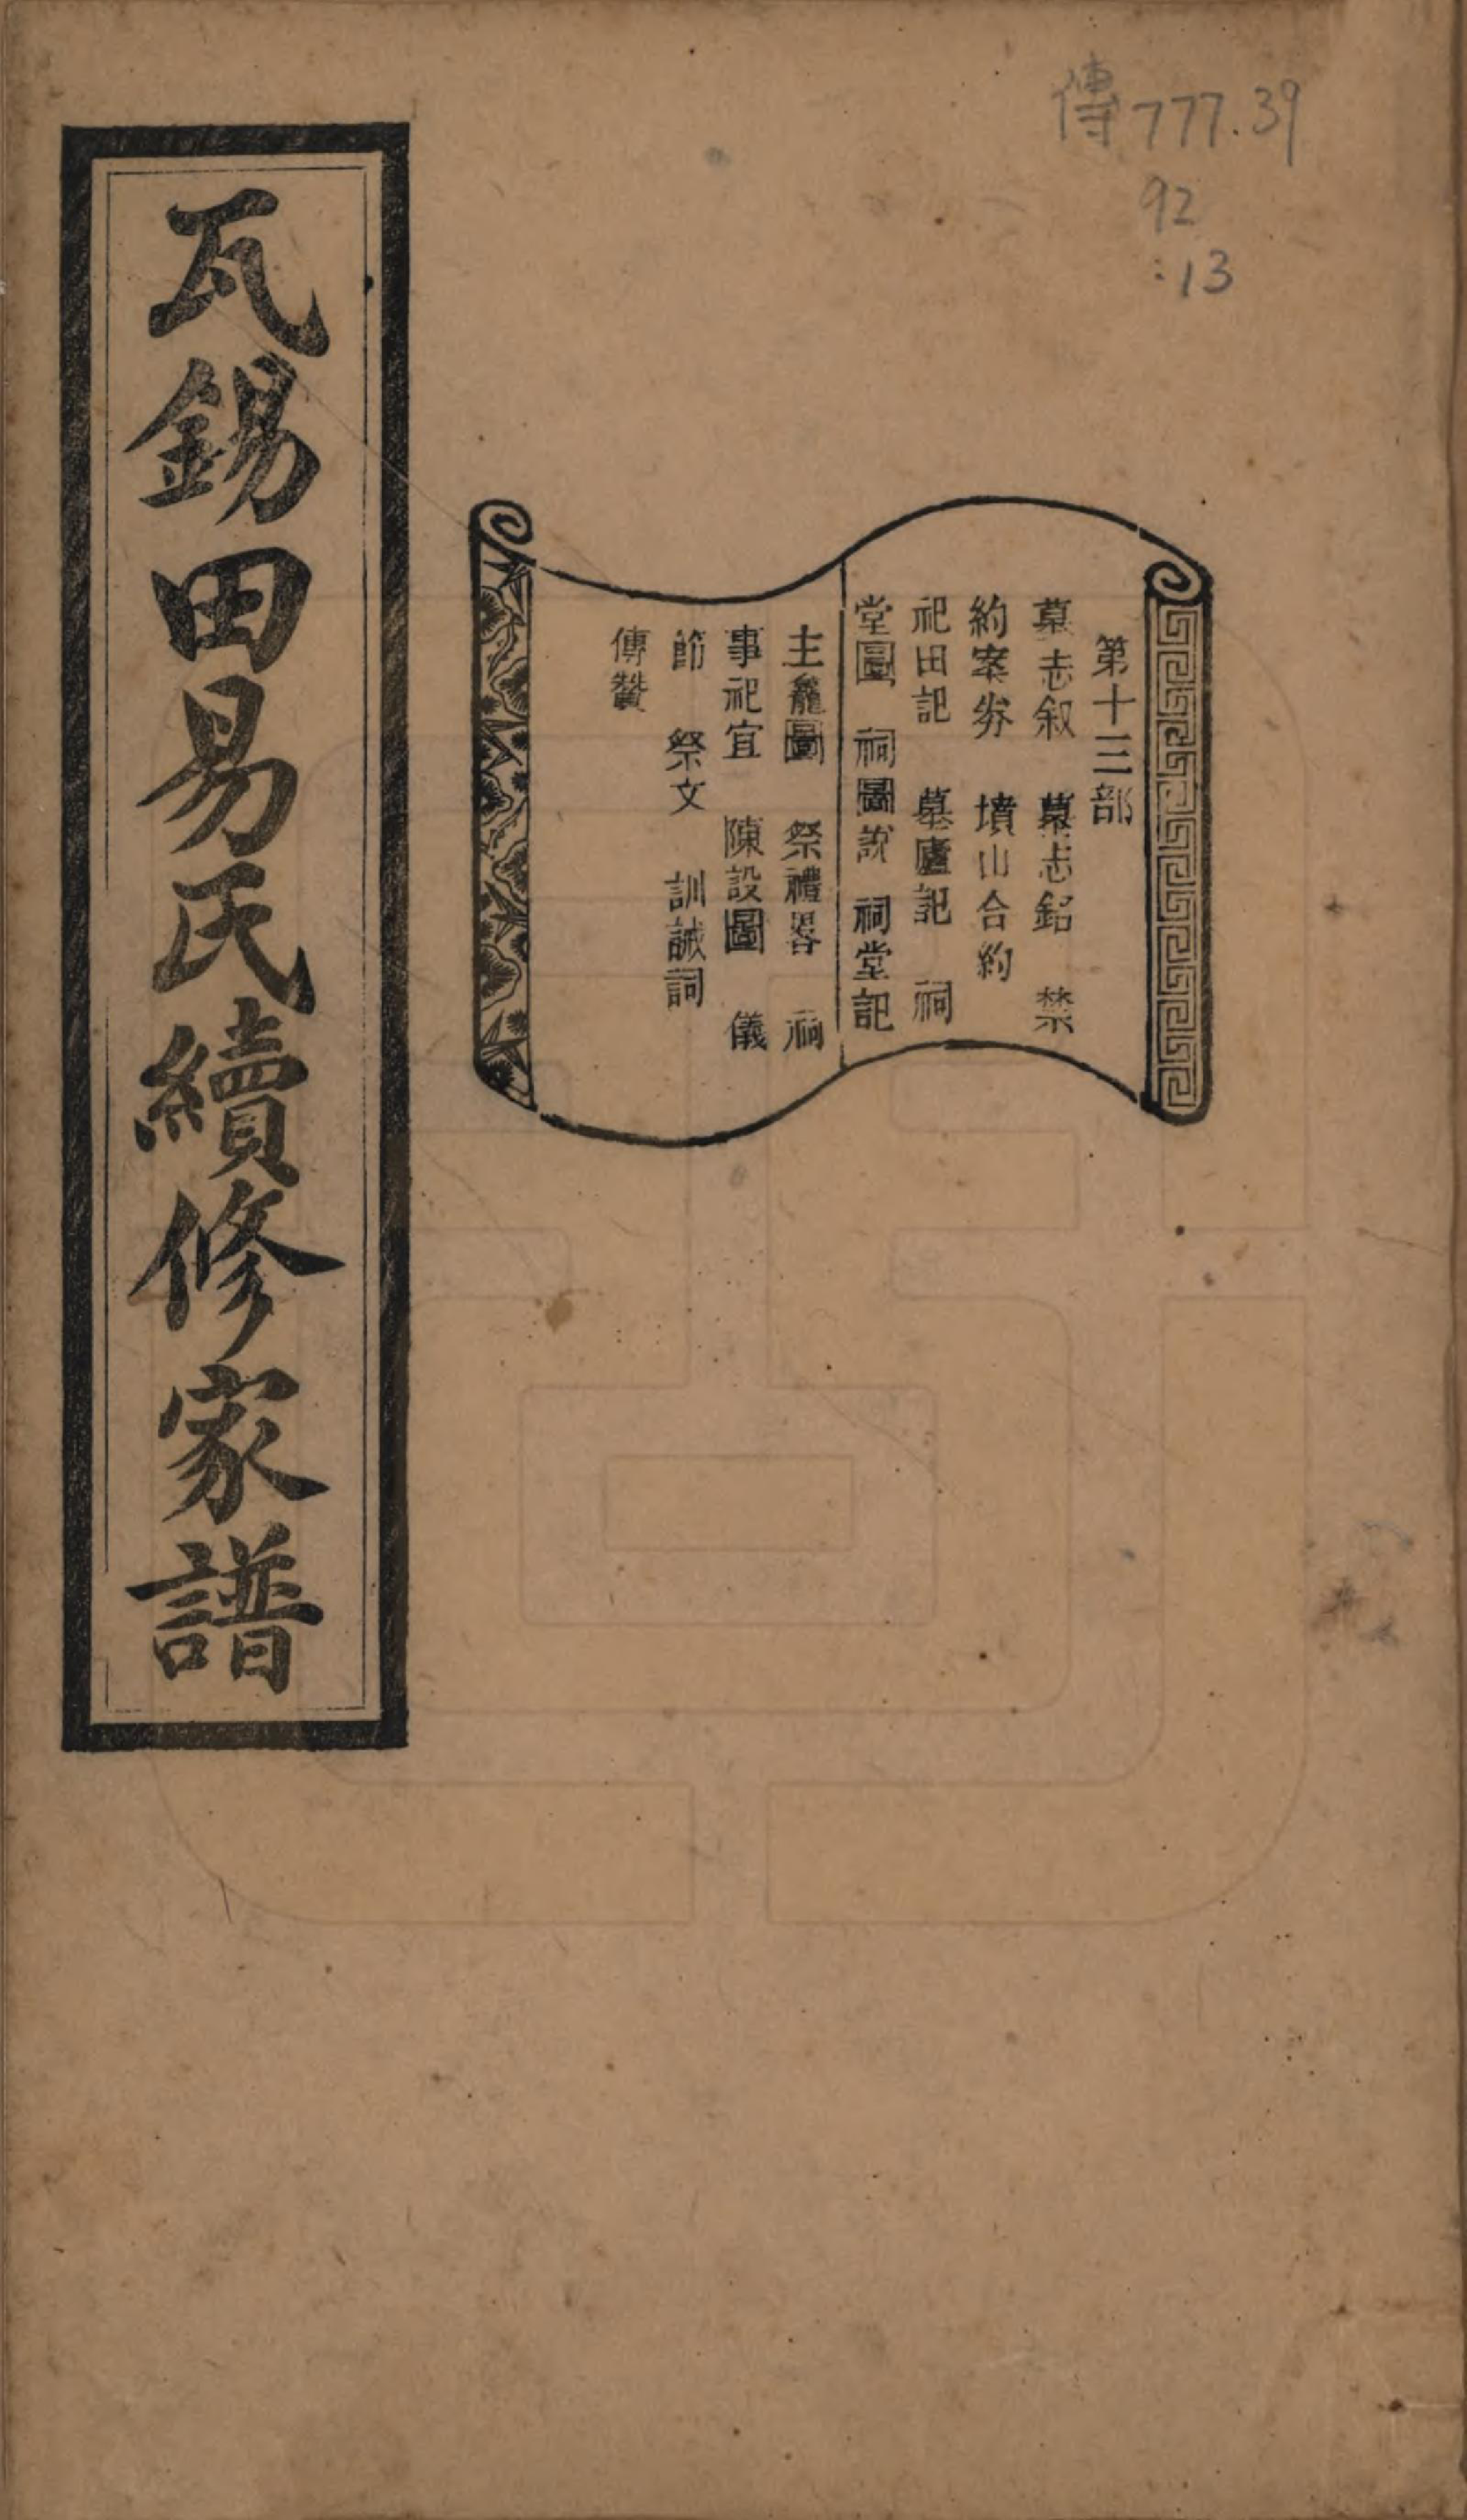 傳777.39
92
:13
第十三部
墓志叙　墓志銘　禁
約案券　墳山合約
祀田記　墓廬記　祠
堂圖　祠圖說　祠堂記
主龕圖　祭禮畧　祠
事祀宜　陳設圖　儀
節　祭文　訓誡詞
傳贊
瓦錫田易氏續修家譜